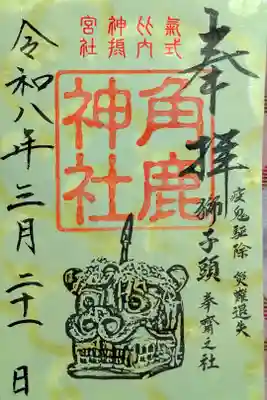 奉拝
疫鬼駆除 災難退失
獅子頭 奉齋之社
氣比神宮
式内摂社
角鹿
神社
令和八年三月二十一日